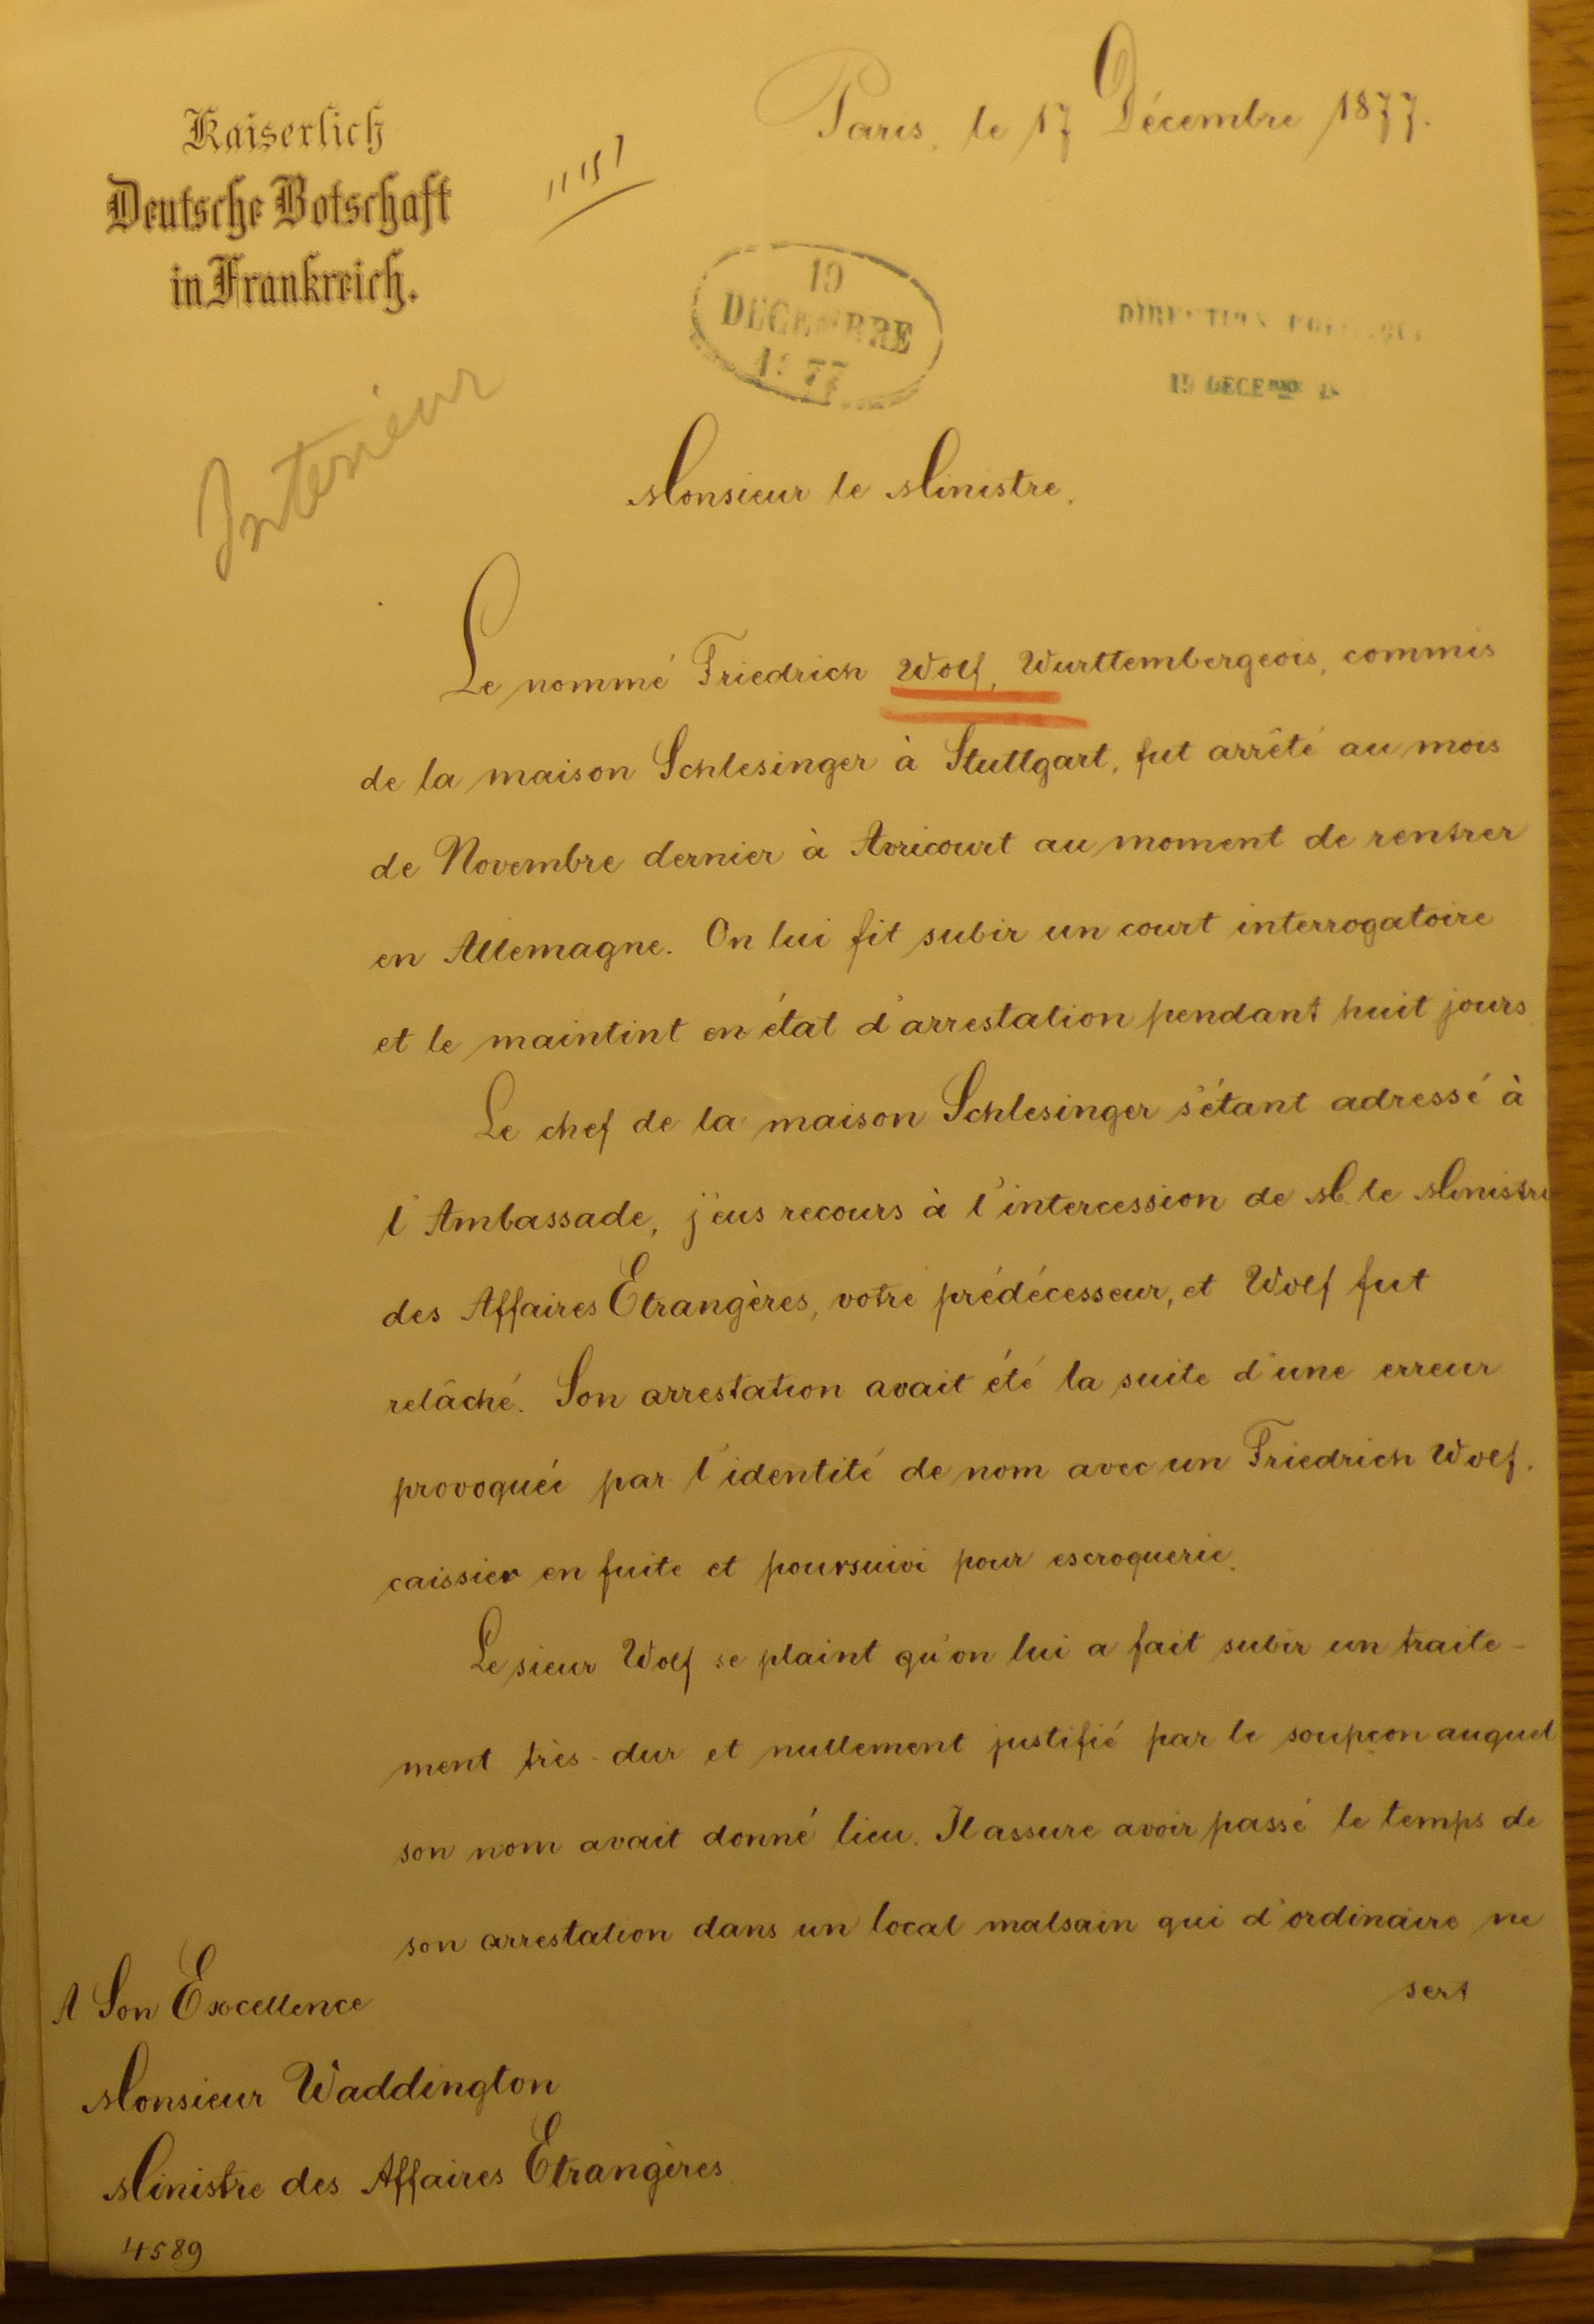 Kaiserlich
Deutsche Botschaft
in Frankreich.
Paris, le 17 Décembre 1877.
19
DECEMBRE
1877
DIRECTION POLITIQUE
19 DECEMBRE
Intérieur
Monsieur le Ministre.
Le nommé Friedrich Wolf, Wurttembergeois, commis
de la maison Schlesinger à Stuttgart, fut arrêté au mois
de Novembre dernier à Avricourt au moment de rentrer
en Allemagne. On lui fit subir un court interrogatoire
et le maintint en état d'arrestation pendant huit jours.
Le chef de la maison Schlesinger s'étant adressé à
l'Ambassade, j'eus recours à l'intercession de M. le Ministre
des Affaires Etrangères, votre prédécesseur, et Wolf fut
relâché. Son arrestation avait été la suite d'une erreur
provoquée par l'identité de nom avec un Friedrich Wolf.
caissier en fuite et poursuivi pour escroquerie.
Le sieur Wolf se plaint qu'on lui a fait subir un traite-
ment très-dur et nullement justifié par le soupçon auquel
son nom avait donné lieu. Il assure avoir passé le temps de
son arrestation dans un local malsain qui d'ordinaire ne
sert
A Son Excellence
Monsieur Waddington
Ministre des Affaires Etrangères.
4589